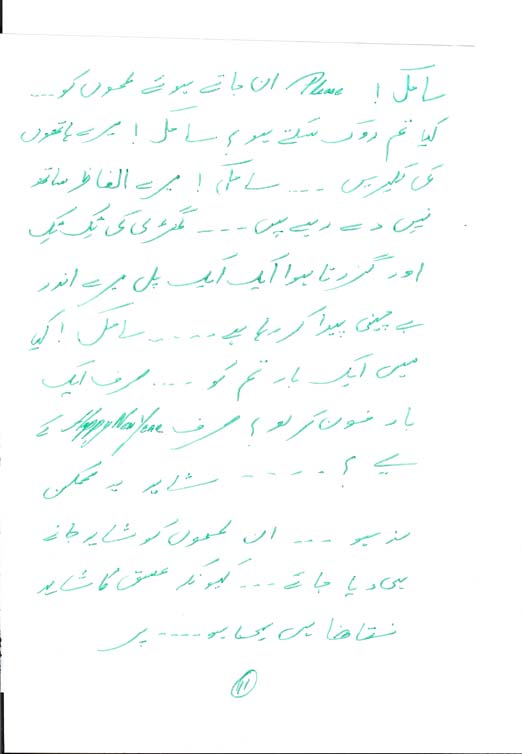 ساحل! Please ان جاتے ہوئے لمحوں کو ....
کیا تم روک سکتے ہو؟ ساحل! میرے ہاتھوں
کی لکیریں ... ساحل! میرے الفاظ ساتھ
نہیں دے رہے ہیں ... گھڑی کی ٹِک ٹِک
اور گزرتا ہوا ایک ایک پل میرے اندر
بے چینی پیدا کر رہا ہے ..... ساحل! کیا
میں ایک بار تم کو .... صرف ایک
بار فون کر لو؟ صرف Happy New Year کے
لیے؟ ..... شاید یہ ممکن
نہ ہو ... ان لمحوں کو شاید جانے
ہی دیا جائے ... کیونکہ عشق کا شاید
تقاضا یہی ہو .... پر
11